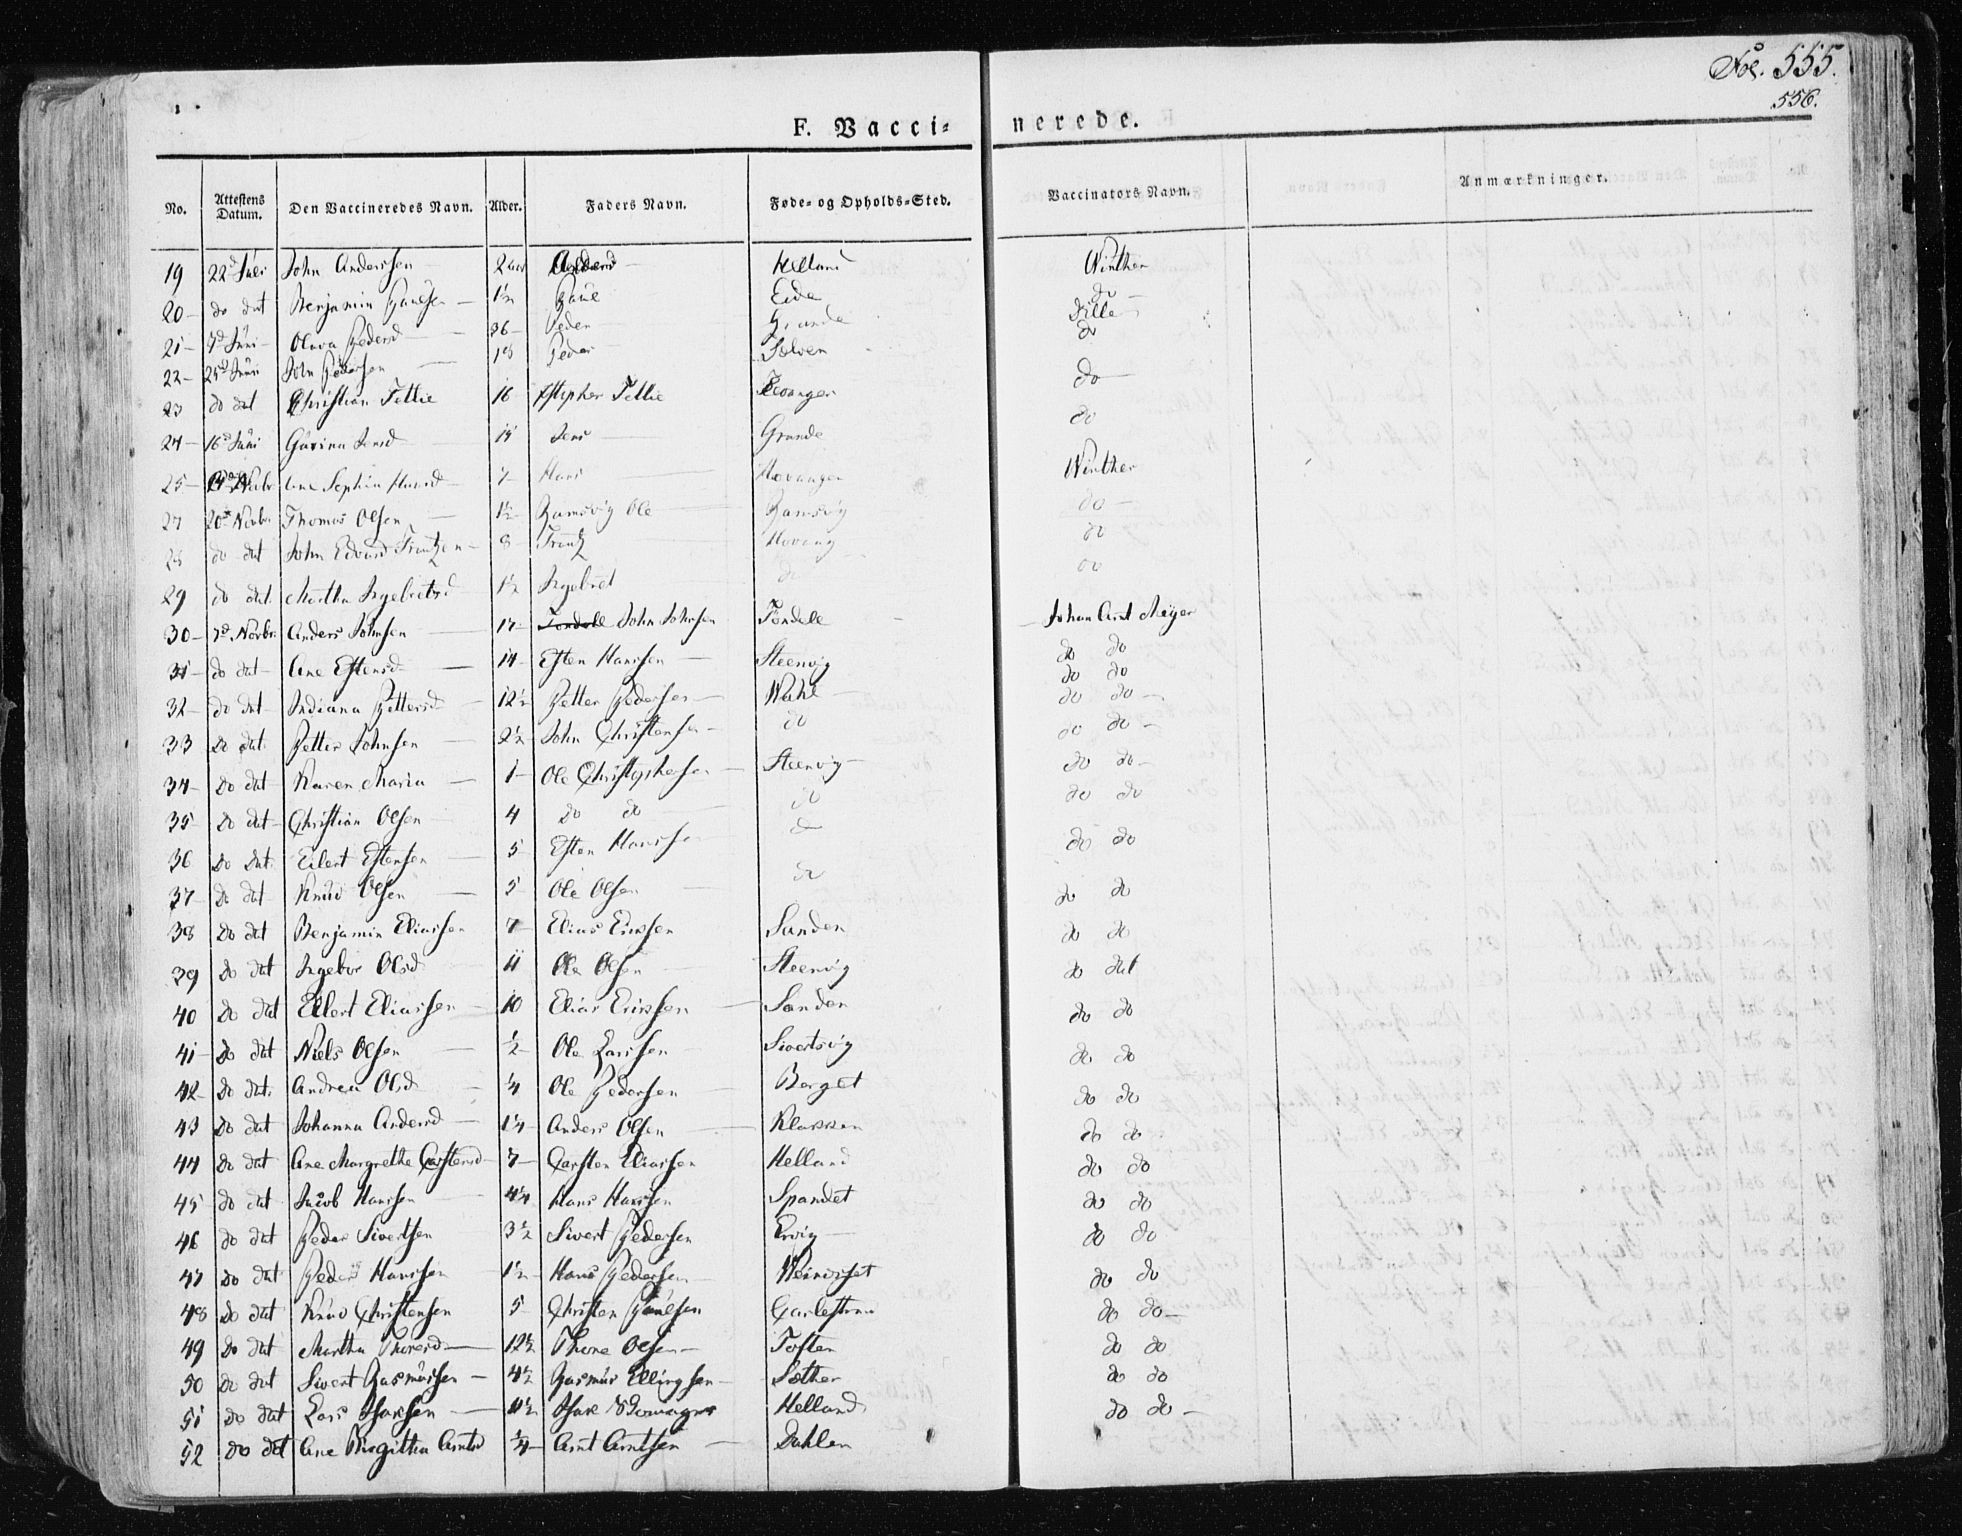 Fol. 555.
556.
F. Vacci- nerede.
No. Attestens Datum. Den Vaccineredes Navn. Alder. Faders Navn. Føde- og Opholds-Sted. Vaccinators Navn. Anmærkninger.
19 22d Juli John Anderssen 2 Anders Helland Winther
20 do dat Benjamin Paulsen 1½ Paul Eide do
21 Juni Oluva Pedersd 36 Peder Grande do
22 25d Juni John Pedersen 18 Peder
23 do dat Christian Tellie 16 Tellie do
24 16d Juni Jensd Jens Grande do
25 Novbr. Ane Sophia Hansd 7 Hans Hovanger Winther
27 20d Novbr. Thomas Olsen 1½ Ramsvig Ole Ramsvig do
28 do dat John Edvard Frantzen 8 Frantz do
29 do dat. Martha Ingebretsd 1½ Ingebret do do
30 7d Novbr. Anders Johnsen 17 John Johnsen Johan Arnt Meyer
31 do dat Ane Estensd 14 Esten Hanssen Steenvig do do
32 do dat Indiana Pettersd 12½ Petter Pedersen do do
33 do dat. Petter Johnsen 2½ John Christensen do do do
34 do dat Karen Maria 1 Ole Christophersen Steenvig do do
35 do dat Christian Olsen 4 do do do do do
36 do dat. Eilert Estensen 5 Esten Hanssen do do do
37 do dat Knud Olsen 5 Ole Olsen do do do
38 do dat Benjamin Eliassen 7 Elias Erichsen Sanden do do
39 do dat Ingebor Olsd 11 Ole Olsen Steenvig do dat
40 do dat Ellert Eliassen 10 Elias Erichsen Sanden do do
41 do dat Niels Olsen ½ Ole Larssen Sivertsvig do do
42 do dat. Andrea Olsd ¼ Ole Pedersen Berget do do
43 do dat Johanna Andersd 1¼ Anders Olsen Klakken do do
44 do dat Ane Margrethe Carstensd 7 Carsten Eliassen Helland do do
45 do dat Jacob Hanssen 4¼ Hans Hanssen Spandet do do
46 do dat Peder Sivertsen 3½ Sivert Pedersen Ervig do do
47 do dat Peder Hanssen 1½ Hans Pedersen do do
48 do dat Knud Christensen 5 Christen Paulsen do do
49 do dat Martha Thoresd 12½ Thore Olsen Toften do do
50 do dat Sivert Rasmussen 4½ Rasmus Ellingsen Sæther do do
51 do dat Lars Isaksen Isak Helland do do
52 do dat Ane Birgitha Arntsd ¼ Arnt Arntsen Dahlen